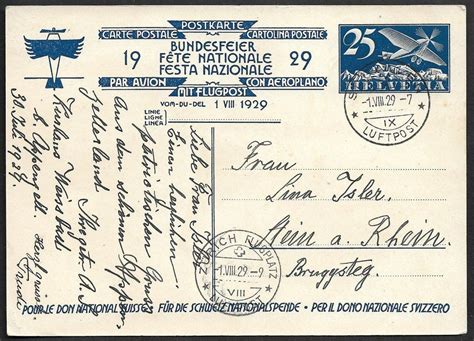 POSTKARTE
CARTE POSTALE CARTOLINA POSTALE
19 BUNDESFEIER 29
FÊTE NATIONALE
FESTA NAZIONALE
PAR AVION CON AEROPLANO
MIT FLUGPOST
VOM·DU·DEL 1 VIII 1929
LINIE
LIGNE
LINEA
25
HELVETIA
-1.VIII.29-7
IX
LUFTPOST
Liebe Frau Isler
Einen herzlichen
patriotischen Gruss
Aus dem schönen
30. Juli 1929.
Trudi
Frau
Lina Isler
Stein a. Rhein.
Bruggsteg.
FLUGPLATZ
-1.VIII.29-9
VIII
LUFTPOST
POUR LE DON NATIONAL SUISSE FÜR DIE SCHWEIZ. NATIONALSPENDE · PER IL DONO NAZIONALE SVIZZERO